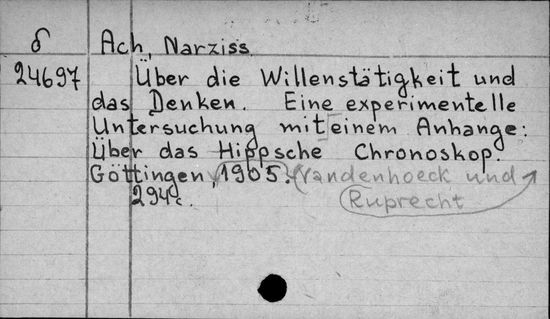 δ Ach, Narziss.
24697 Über die Willenstätigkeit und
das Denken. Eine experimentelle
Untersuchung mit einem Anhange:
Über das Hippsche Chronoskop.
Göttingen, 1905. (Vandenhoeck und
294c. Ruprecht